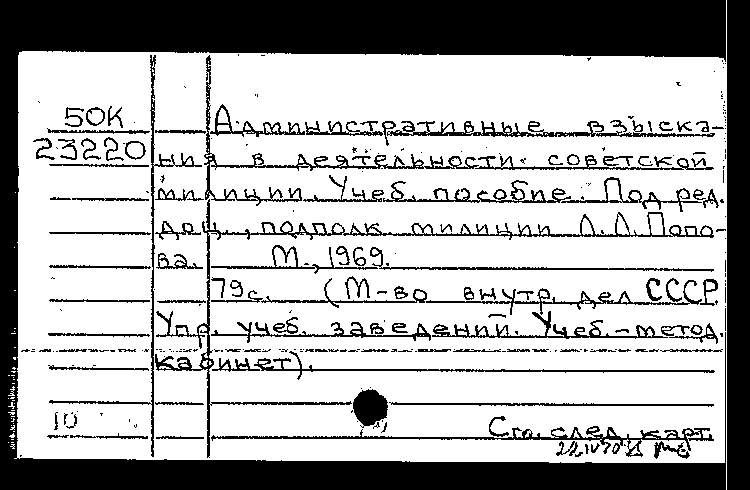 50К Административные взыска-
23220 ния в деятельности советской
милиции. Учеб. пособие. Под ред.
доц., подполк. милиции Л.Л. Попо-
ва. М., 1969.
79с. (М-во внутр. дел СССР.
Упр. учеб. заведений. Учеб.-метод.
кабинет).
10
См. след. карт.
22.IV70